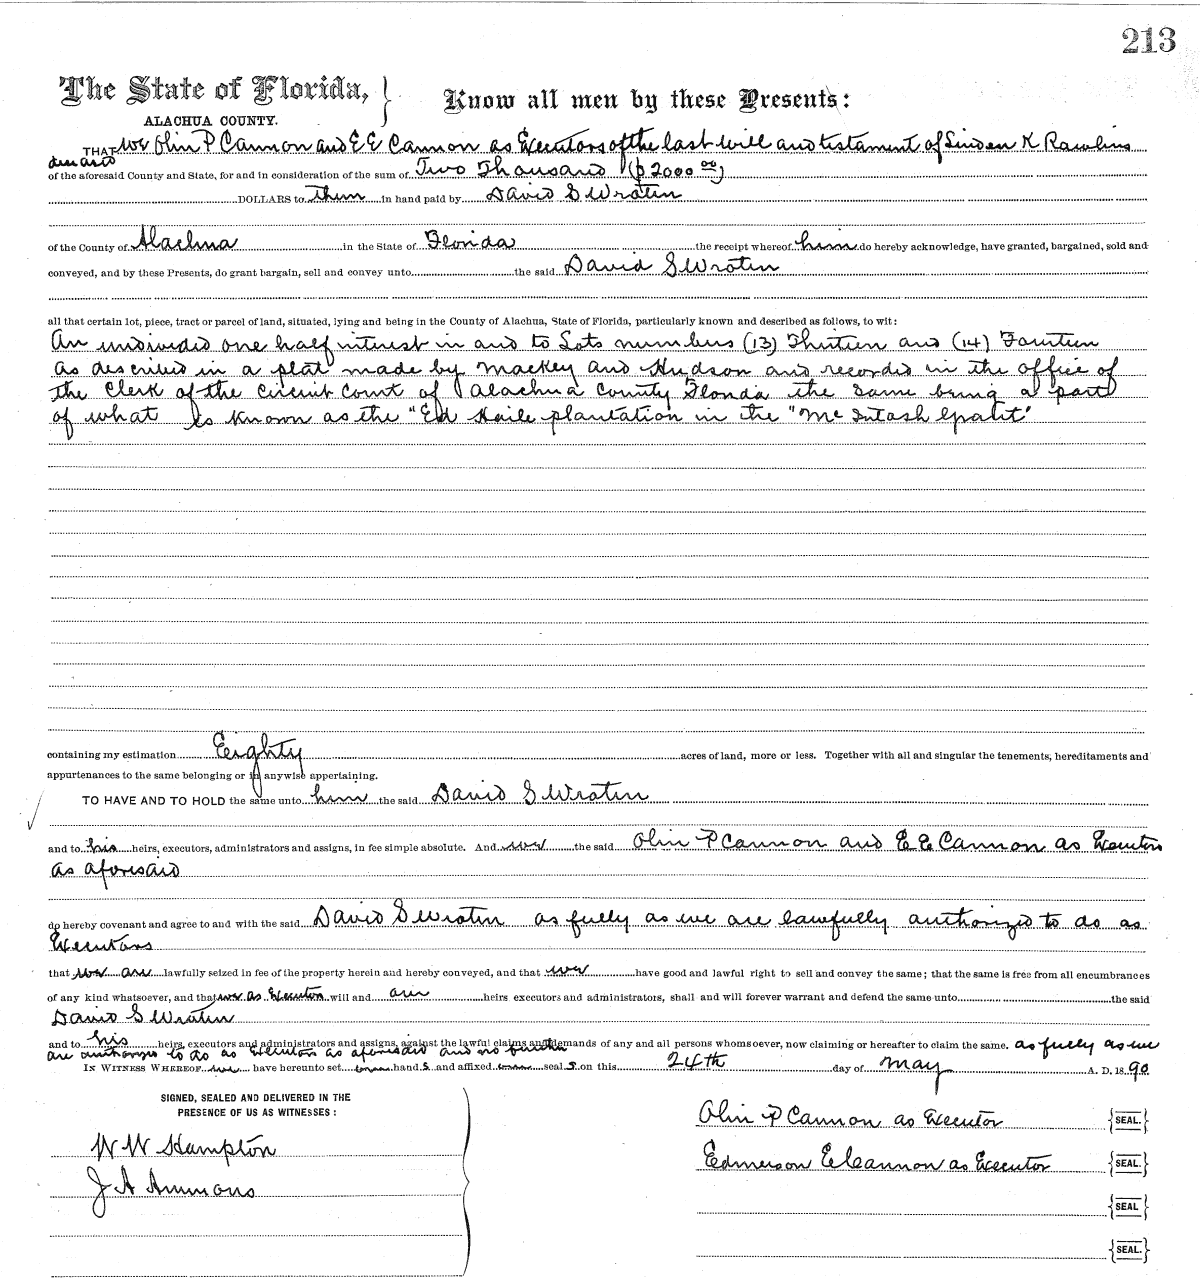 213
The State of Florida, } Know all men by these Presents:
ALACHUA COUNTY.
THAT We Olin P Cannon and E E Cannon as Executors of the last will and testament of Linden K Rawlins
deceased
of the aforesaid County and State, for and in consideration of the sum of Two Thousand ($2000 00)
DOLLARS to them in hand paid by David S Wrotin
of the County of Alachua in the State of Florida the receipt whereof him do hereby acknowledge, have granted, bargained, sold and
conveyed, and by these Presents, do grant bargain, sell and convey unto the said David S Wrotin
all that certain lot, piece, tract or parcel of land, situated, lying and being in the County of Alachua, State of Florida, particularly known and described as follows, to wit:
An undivided one half interest in and to Lots numbers (13) Thirteen and (14) Fourteen
as described in a plat made by Mackey and Hudson and recorded in the office of
the Clerk of the Circuit Court of Alachua County Florida the same being a part
of what is known as the "Ed Haile plantation in the "Mc Intash Grant"
containing my estimation Eighty acres of land, more or less. Together with all and singular the tenements, hereditaments and
appurtenances to the same belonging or in anywise appertaining.
TO HAVE AND TO HOLD the same unto him the said David S Wrotin
and to his heirs, executors, administrators and assigns, in fee simple absolute. And we the said Olin P Cannon and E E Cannon as Executors
as aforesaid
do hereby covenant and agree to and with the said David S Wrotin as fully as we are lawfully authorized to do as
Executors
that we are lawfully seized in fee of the property herein and hereby conveyed, and that we have good and lawful right to sell and convey the same; that the same is free from all encumbrances
of any kind whatsoever, and that we as Executors will and our heirs executors and administrators, shall and will forever warrant and defend the same unto the said
David S Wrotin
and to his heirs, executors and administrators and assigns, against the lawful claims and demands of any and all persons whomsoever, now claiming or hereafter to claim the same. as fully as we
are authorized to do as Executors as aforesaid and no further
IN WITNESS WHEREOF we have hereunto set our hand s and affixed our seal s on this 24th day of May A. D. 18 90
SIGNED, SEALED AND DELIVERED IN THE
PRESENCE OF US AS WITNESSES:
W W Hampton
J A Ammons
Olin P Cannon as Executor {SEAL.}
Edmerson E Cannon as Executor {SEAL.}
{SEAL}
{SEAL.}